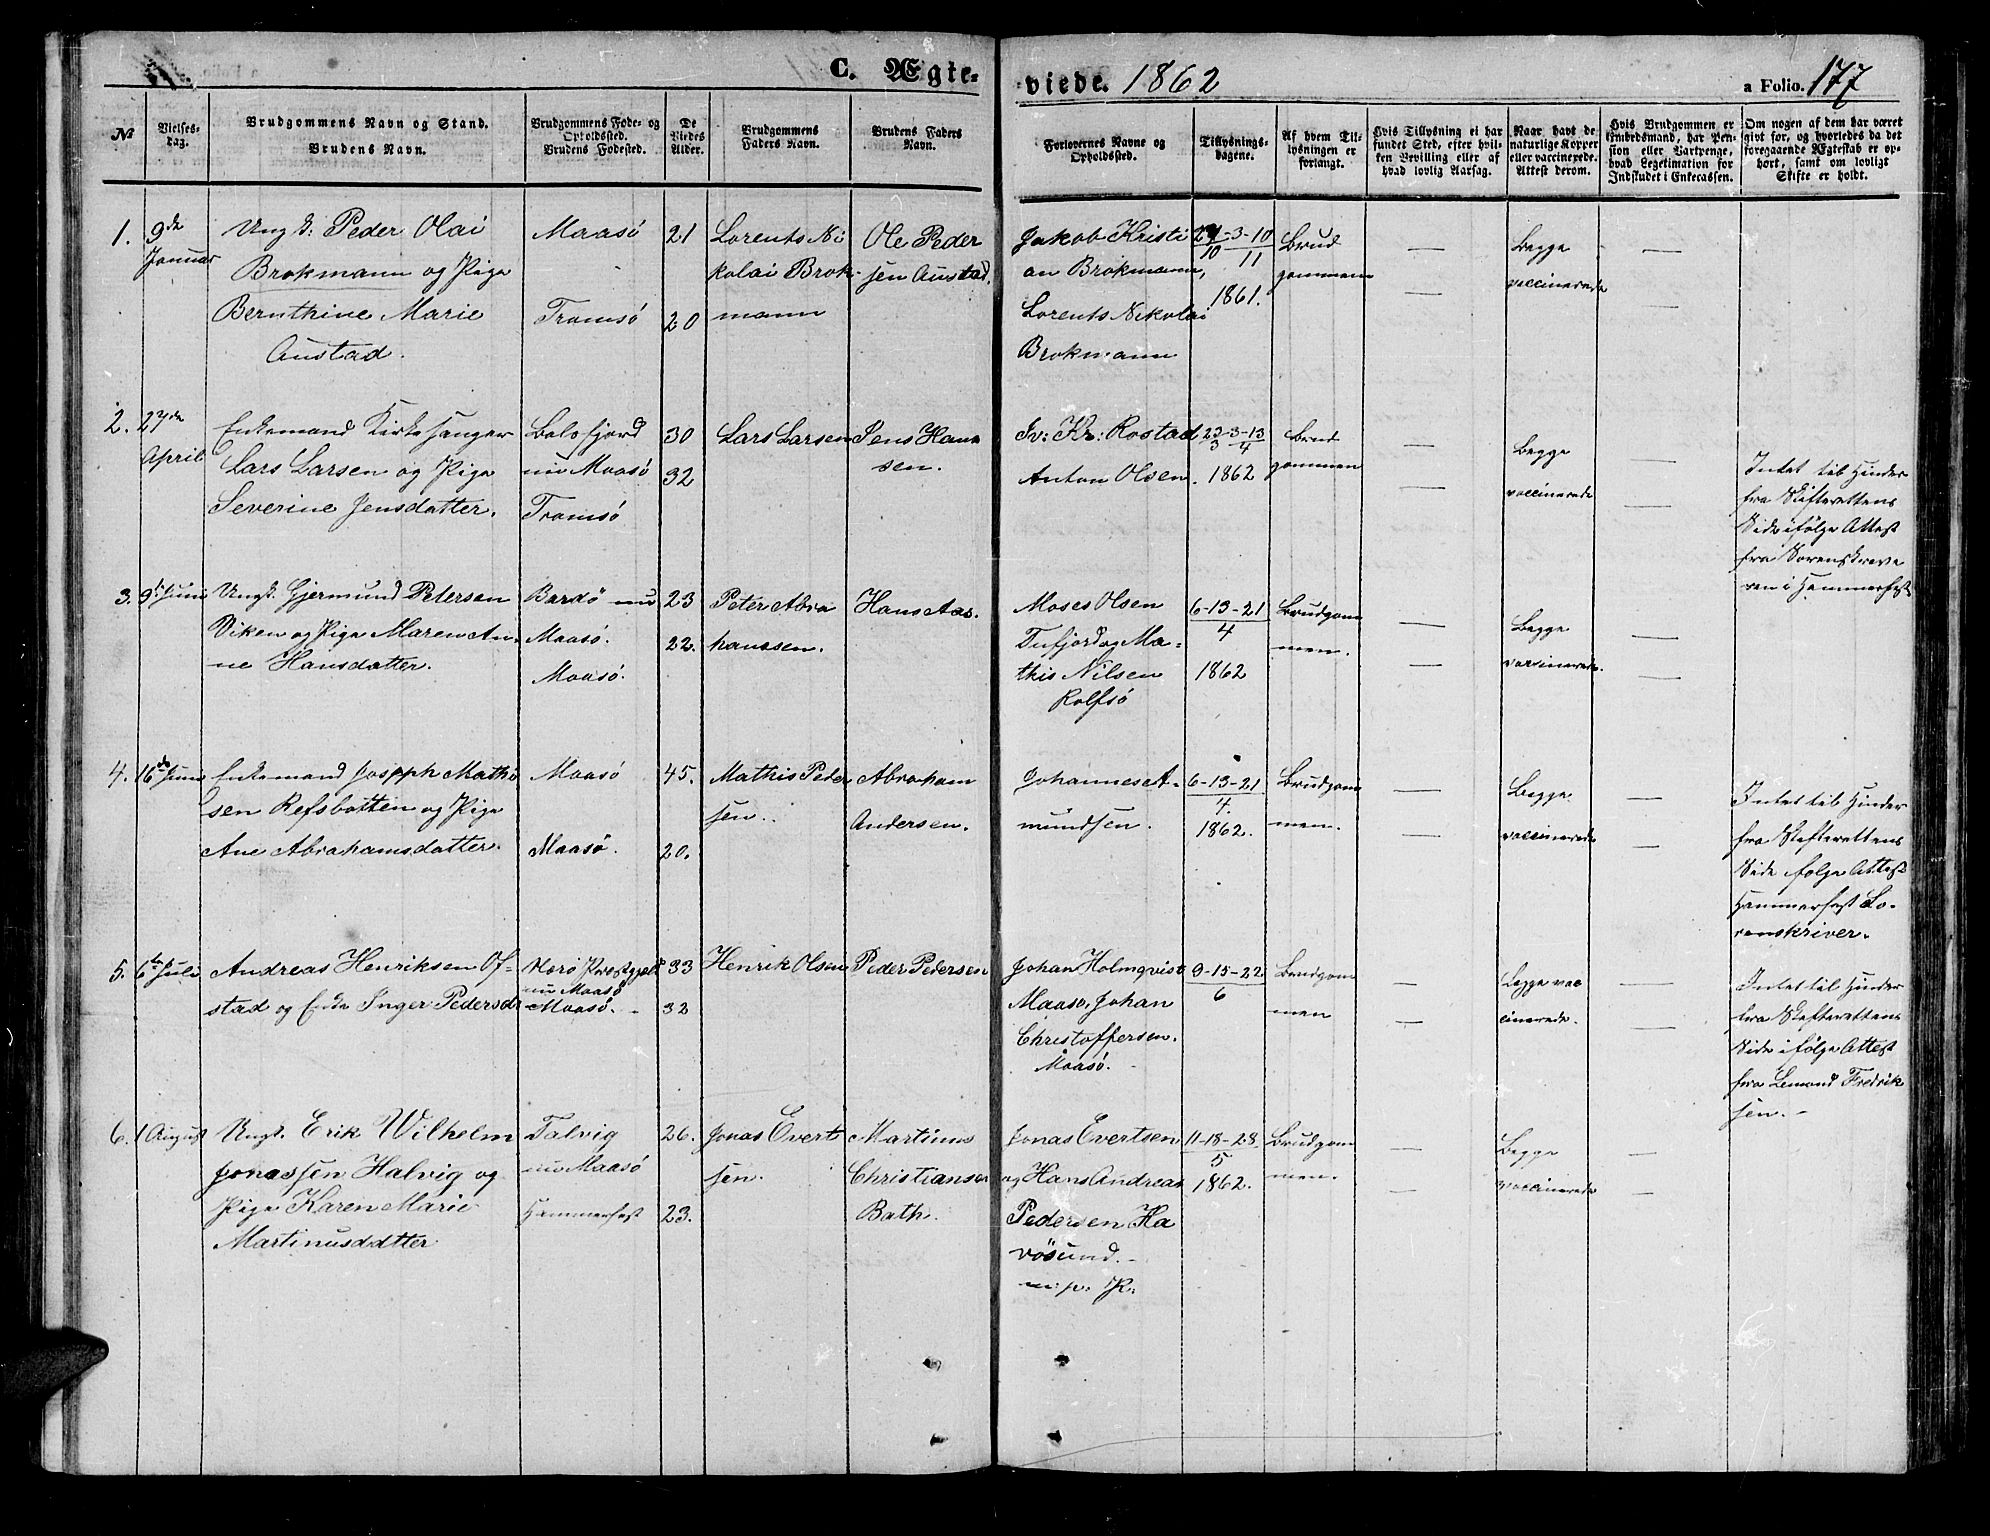 C. Ægte-
viede. 1862
a Folio. 177
No
Vielses-
dag.
Brudgommens Navn og Stand.
Brudens Navn.
Brudgommens Føde- og
Opholdssted.
Brudens Fødested.
De
Viedes
Alder.
Brudgommens
Faders Navn.
Brudens Faders
Navn.
Forlovernes Navne og
Opholdssted.
Tillysnings-
dagene.
Af hvem Til-
lysningen er
forlangt.
Hvis Tillysning ei har
fundet Sted, efter hvil-
ken Bevilling eller af
hvad lovlig Aarsag.
Naar havt de
naturlige Kopper
eller vaccinerede.
Attest derom.
Hvis Brudgommen er
Embedsmand, har Pen-
sion eller Vartpenge,
hvad Legetimation for
Indskudet i Enkecassen.
Om nogen af dem har været
givt før, og hvorledes da det
foregaaende Ægteskab er op-
hørt, samt om lovligt
Skifte er holdt.
1.
9de
Januar
Ungk: Peder Olai
Brokmann og Pige
Bernthine Marie
Austad.
Maasö
Tromsö
21
20
Lorents Ni
kolai Brok-
mann
Ole Peder
sen Austad.
Jakob Kristi
an Brokmann,
Lorents Nikolai
Brokmann
-3-10
10 11
1861.
Brud
gommen
Begge
vaccinerede
2.
27de
April
Enkemand Kirkesanger
Lars Larsen og Pige
Severine Jensdatter.
Balsfjord
nu Maasö
Tromsö
30
32
Lars Larsen
Jens Han
sen.
Iv: Kr: Rostad
Anton Olsen.
23-3-13
3 4
1862
Brud
gommen
Begge
vaccinerede
Intet til Hinder
fra Skifterettens
Side ifölge Attest
fra Sorenskrive
ren i Hammerfest
3.
9de Juni
Ungk. Gjermund Petersen
Viken og Pige Maren An-
ne Hansdatter.
Bardö nu
Maasö.
Maasö.
23
22.
Peter Abra
hamsen.
Hans Aas.
Moses Olsen
Tufjord og Ma-
this Nilsen
Rolfsö
6-13-21
4
1862
Brudgom
men.
Begge
vaccinerede.
4.
16de Juni
Enkemand Joseph Mathi
sen Refsbotten og Pige
Ane Abrahamsdatter.
Maasö
Maasö.
45.
20.
Mathis Peder
sen.
Abraham
Andersen.
Johannes A-
mundsen.
6-13-21
4.
1862.
Brudgom
men.
Begge
vaccinerede
Intet til Hinder
fra Skifterettens
Side fölge Attest
Hammerfest So-
renskriver.
5.
6te Juli
Andreas Henriksen Of-
stad og Enke Inger Pedersdr
Nærö Prestgjeld
nu Maasö
Maasö.
33
32
Henrik Olsen
Peder Pedersen
Johan Holmqvist
Maasö, Johan
Christoffersen.
Maasö.
9-15-22
6
Brudgom
men
Begge vac
cinerede.
Intet til Hinder
fra Skifterettens
Side ifölge Attest
fra Lemand Fredrik
sen.
6.
1 August
Ungk. Erik Wilhelm
Jonassen Halvig og
Pige Karen Marie
Martinusdatter
Talvig
nu Maasö
Hammerfest
26.
23.
Jonas Evert
sen.
Martinus
Christiansen
Bath.
Jonas Evertsen
og Hans Andreas
Pedersen Ha
vösund.
m: p. R:
11-18-28
5
1862.
Brudgom
men.
Begge
vaccinerede